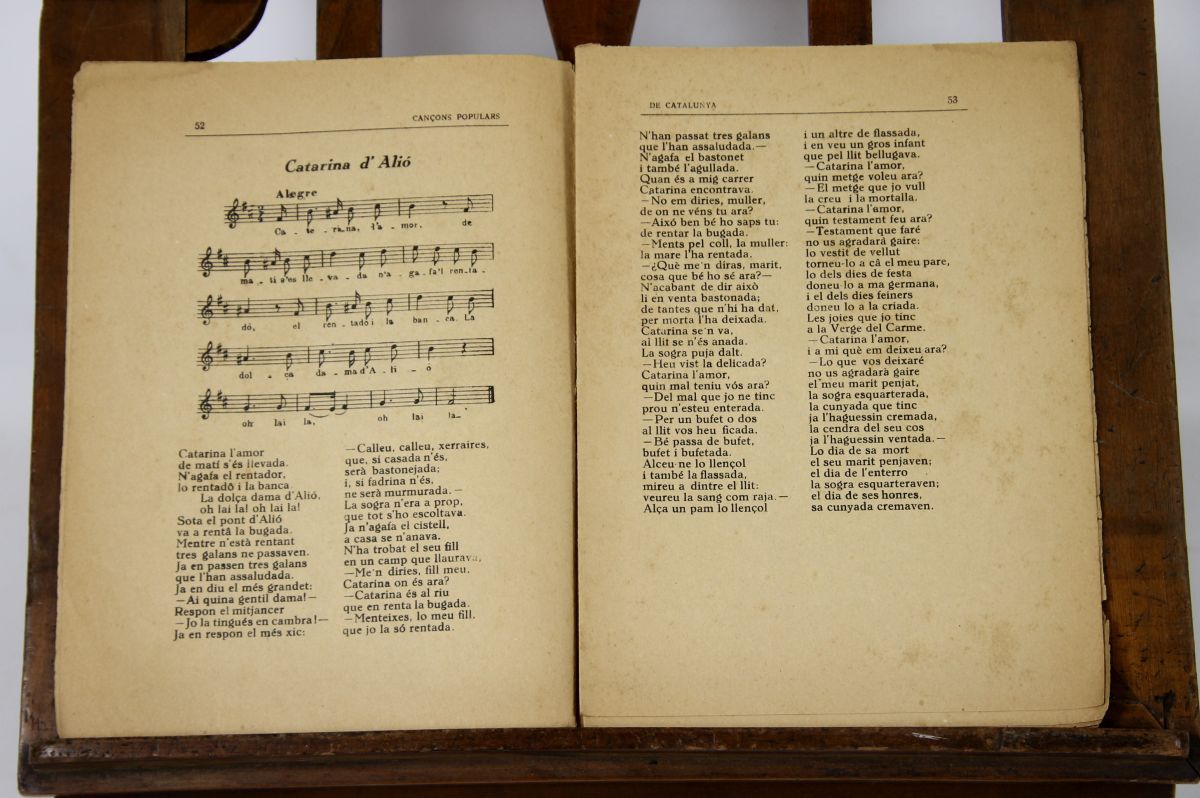 52
CANÇONS POPULARS
Catarina d'Alió
Alegre
Ca - te - ri-na, l'a - mor, de
ma - ti s'es lle - va - da n'a - ga - fa'l renta -
dó, el ren - tadó i la ban - ca. La
dol - ça da - ma d'A - li - ó
oh lai la, oh lai la.
Catarina l'amor
de matí s'és llevada.
N'agafa el rentador,
lo rentadó i la banca.
La dolça dama d'Alió,
oh lai la! oh lai la!
Sota el pont d'Alió
va a rentâ la bugada.
Mentre n'està rentant
tres galans ne passaven.
Ja en passen tres galans
que l'han assaludada.
Ja en diu el més grandet:
—Ai quina gentil dama!—
Respon el mitjancer
—Jo la tingués en cambra!—
Ja en respon el més xic:
—Calleu, calleu, xerraires,
que, si casada n'és,
serà bastonejada;
i, si fadrina n'és,
ne serà murmurada.—
La sogra n'era a prop,
que tot s'ho escoltava.
Ja n'agafa el cistell,
a casa se n'anava.
N'ha trobat el seu fill
en un camp que llaurava,
—Me'n diries, fill meu,
Catarina on és ara?
—Catarina és al riu
que en renta la bugada.
—Menteixes, lo meu fill,
que jo la só rentada.
DE CATALUNYA
53
N'han passat tres galans
que l'han assaludada.—
N'agafa el bastonet
i també l'agullada.
Quan és a mig carrer
Catarina encontrava.
—No em diries, muller,
de on ne véns tu ara?
—Aixó ben bé ho saps tu:
de rentar la bugada.
—Ments pel coll, la muller:
la mare l'ha rentada.
—¿Què me'n diras, marit,
cosa que bé ho sé ara?—
N'acabant de dir això
li en venta bastonada;
de tantes que n'hi ha dat,
per morta l'ha deixada.
Catarina se'n va,
al llit se n'és anada.
La sogra puja dalt.
—Heu vist la delicada?
Catarina l'amor,
quin mal teniu vós ara?
—Del mal que jo ne tinc
prou n'esteu enterada.
—Per un bufet o dos
al llit vos heu ficada.
—Bé passa de bufet,
bufet i bufetada.
Alceu-ne lo llençol
i també la flassada,
mireu a dintre el llit:
veureu la sang com raja.—
Alça un pam lo llençol
i un altre de flassada,
i en veu un gros infant
que pel llit bellugava.
—Catarina l'amor,
quin metge voleu ara?
—El metge que jo vull
la creu i la mortalla.
—Catarina l'amor,
quin testament feu ara?
—Testament que faré
no us agradarà gaire:
lo vestit de vellut
torneu-lo a câ el meu pare,
lo dels dies de festa
doneu-lo a ma germana,
i el dels dies feiners
doneu lo a la criada.
Les joies que jo tinc
a la Verge del Carme.
—Catarina l'amor,
i a mi què em deixeu ara?
—Lo que vos deixaré
no us agradarà gaire
el meu marit penjat,
la sogra esquarterada,
la cunyada que tinc
ja l'haguessin cremada,
la cendra del seu cos
ja l'haguessin ventada.—
Lo dia de sa mort
el seu marit penjaven;
el dia de l'enterro
la sogra esquarteraven;
el dia de ses honres,
sa cunyada cremaven.